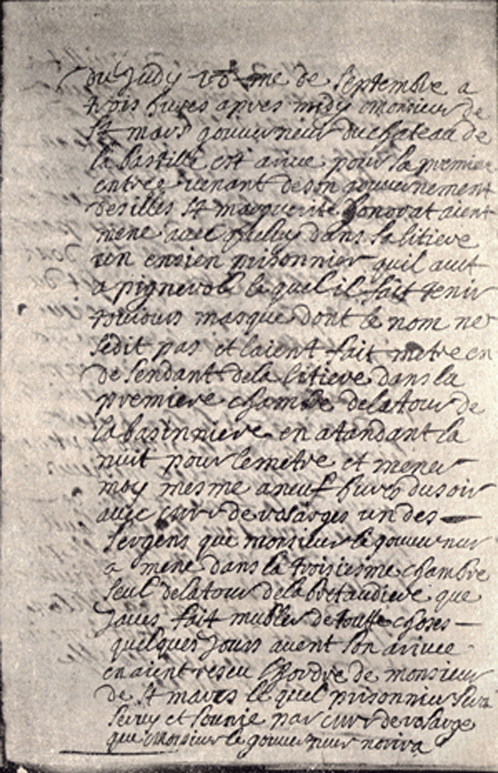 du judy 18me de septembre a
trois hures apres midy monsieur de
St mars gouverneur du chateau de
la bastille est arive pour sa premier
entree venant de son gouvernement
des illes St marguerite honorat aient
mene avec queluy dans sa litiere
un ensien prisonnier quil avet
a pignerol le quel il fait tenir
touiours masque dont le nom ne
sedit pas et laient fait metre en
de sendant de la litiere dans la
premiere chambre de la tour de
la basinniere en atandant la
nuit pour le metre et mener
moy mesme a neuf hures du soir
avec mr de rosarges un des
sergens que monsieur le gouverneur
a mene dans la troisiesme chambre
seul de la tour de la bretaudiere que
javes fait mubler de toutte choses
quelques jours avent son arivee
en aient reseu lhordre de monsieur
de St mars le quel prisonnier sera
servy et sounie par mr de rosarge
que monsieur le gouverneur norira